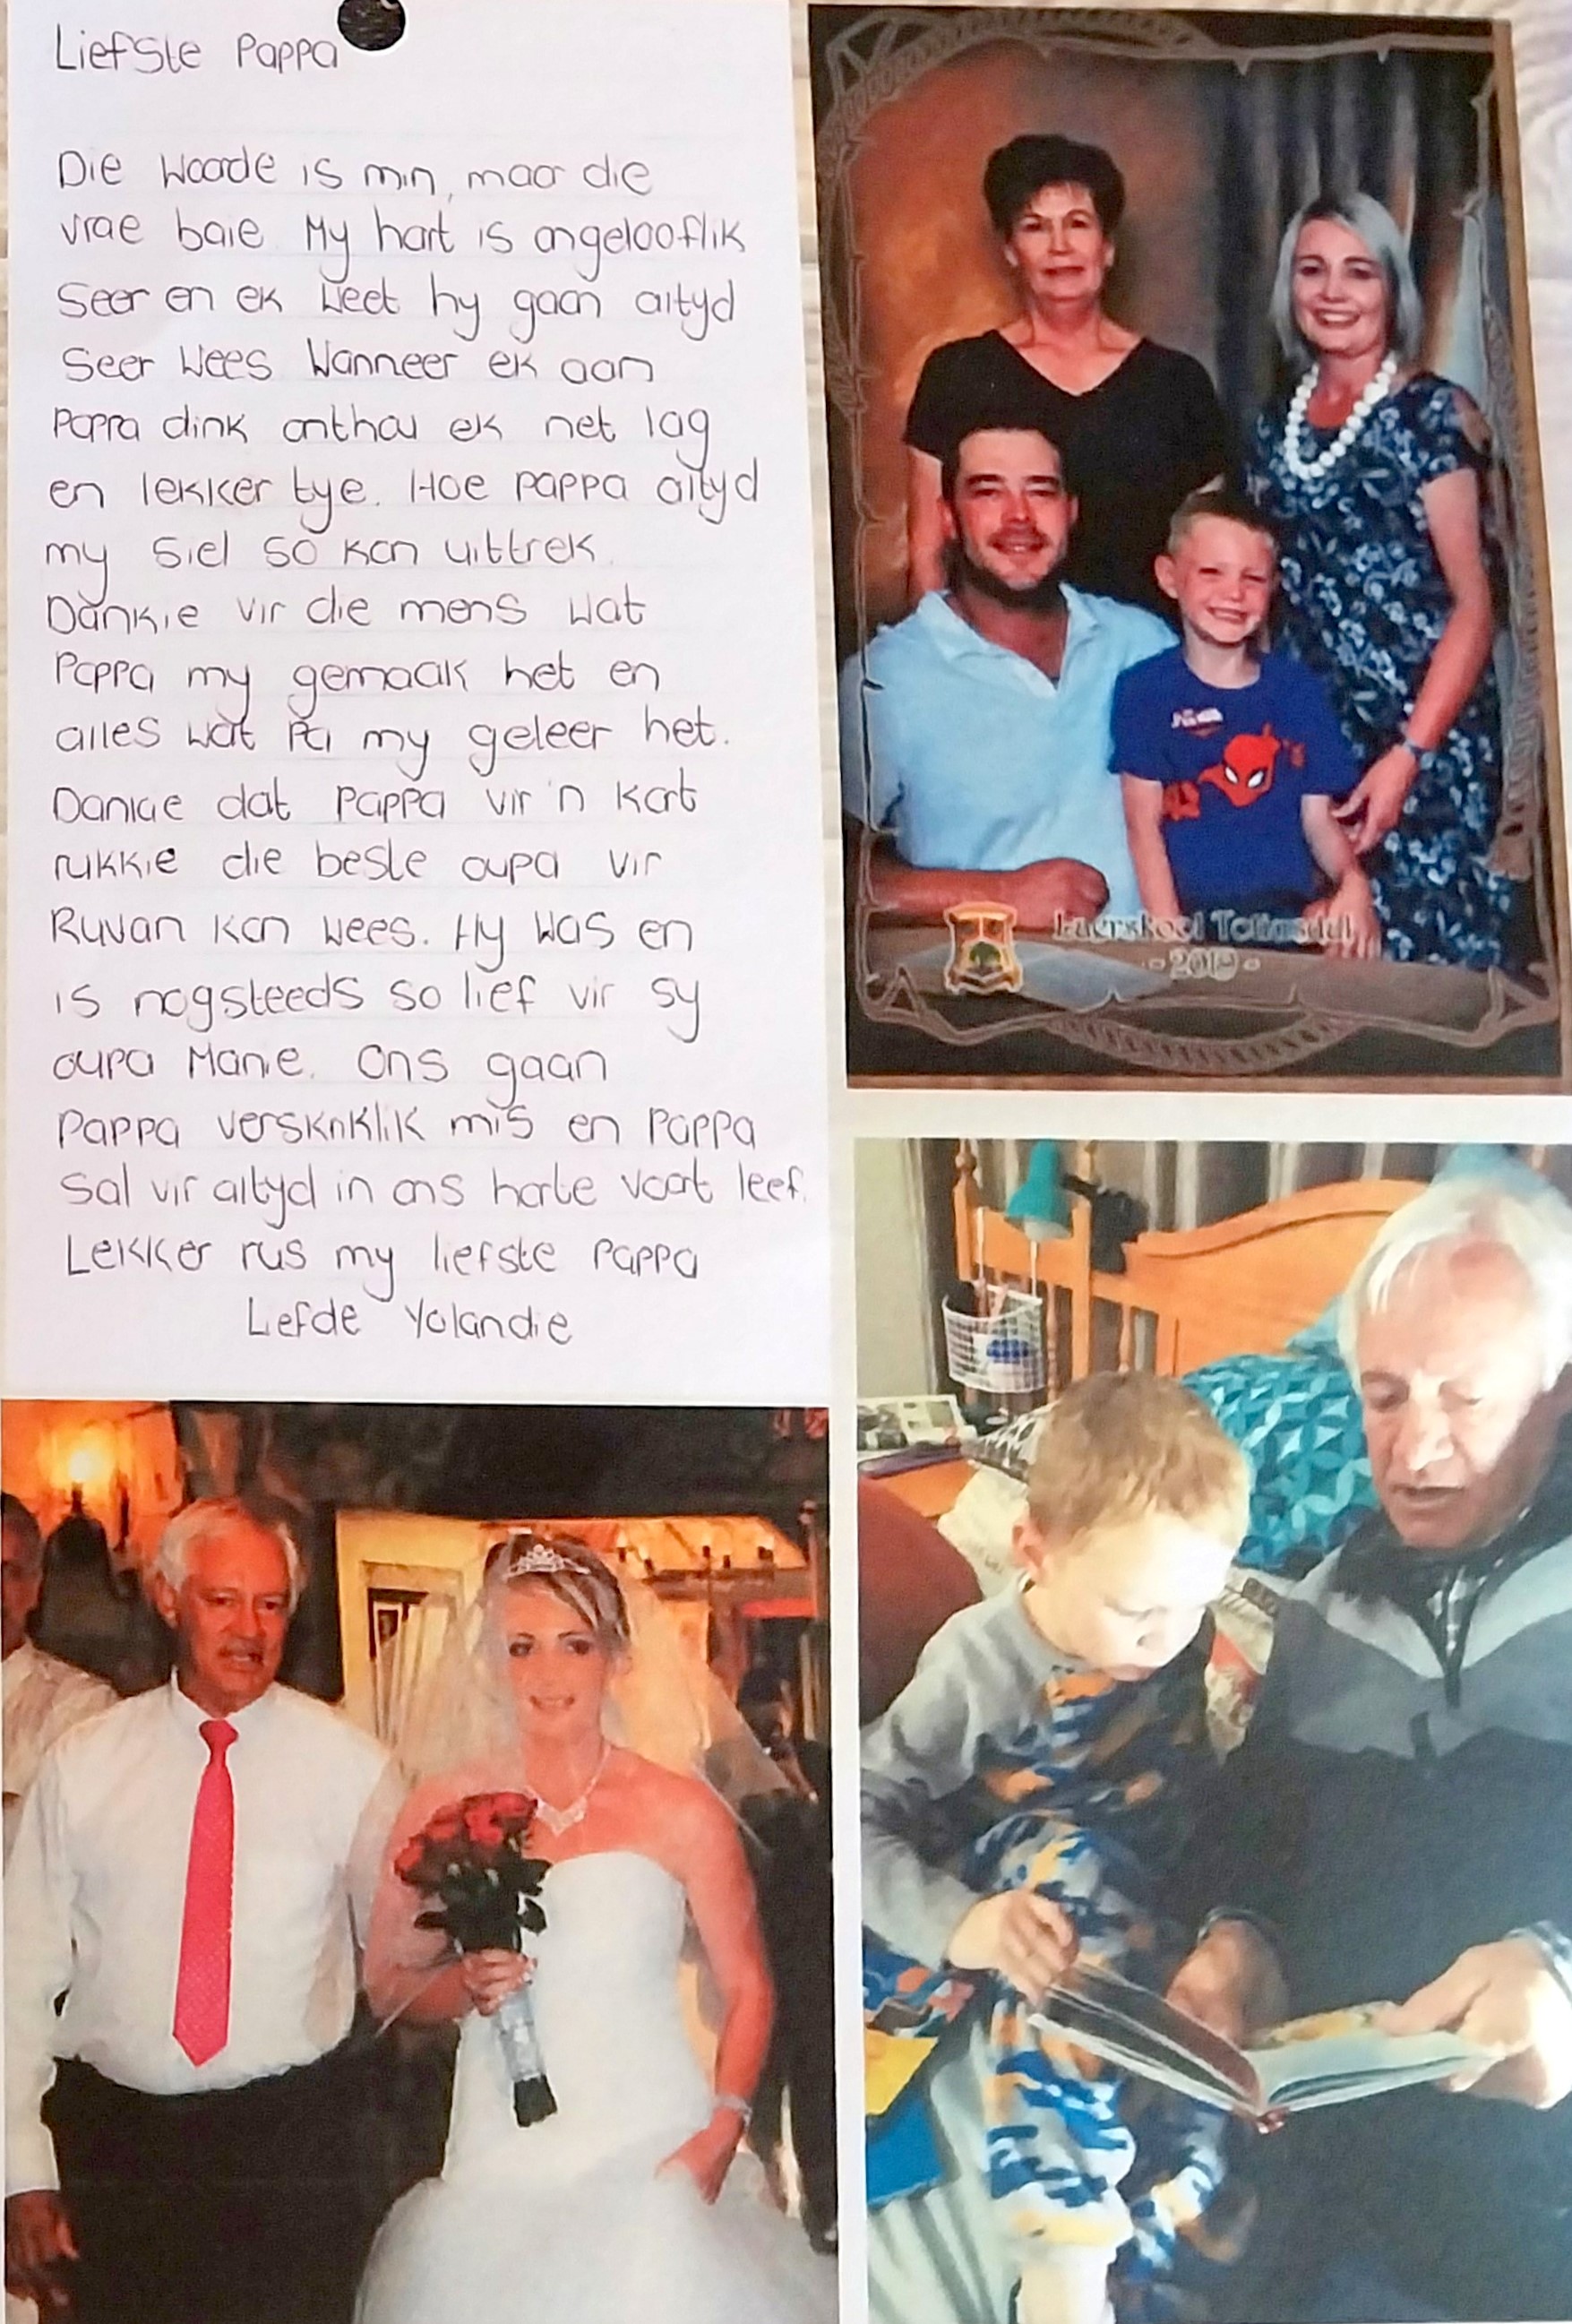 Liefste Pappa
Die woorde is min, maar die
vrae baie. My hart is ongelooflik
seer en ek weet hy gaan altyd
seer wees. Wanneer ek aan
Pappa dink onthou ek net lag
en lekker tye. Hoe pappa altyd
my siel so kon uittrek.
Dankie vir die mens wat
Pappa my gemaak het en
alles wat Pa my geleer het.
Dankie dat pappa vir 'n kort
rukkie die beste oupa vir
Ruvan kon wees. Hy was en
is nogsteeds so lief vir sy
oupa Manie. Ons gaan
Pappa versknklik mis en pappa
sal vir altyd in ons harte voort leef.
Lekker rus my liefste pappa
Lefde Yolandie
Laerskool
- 2019 -